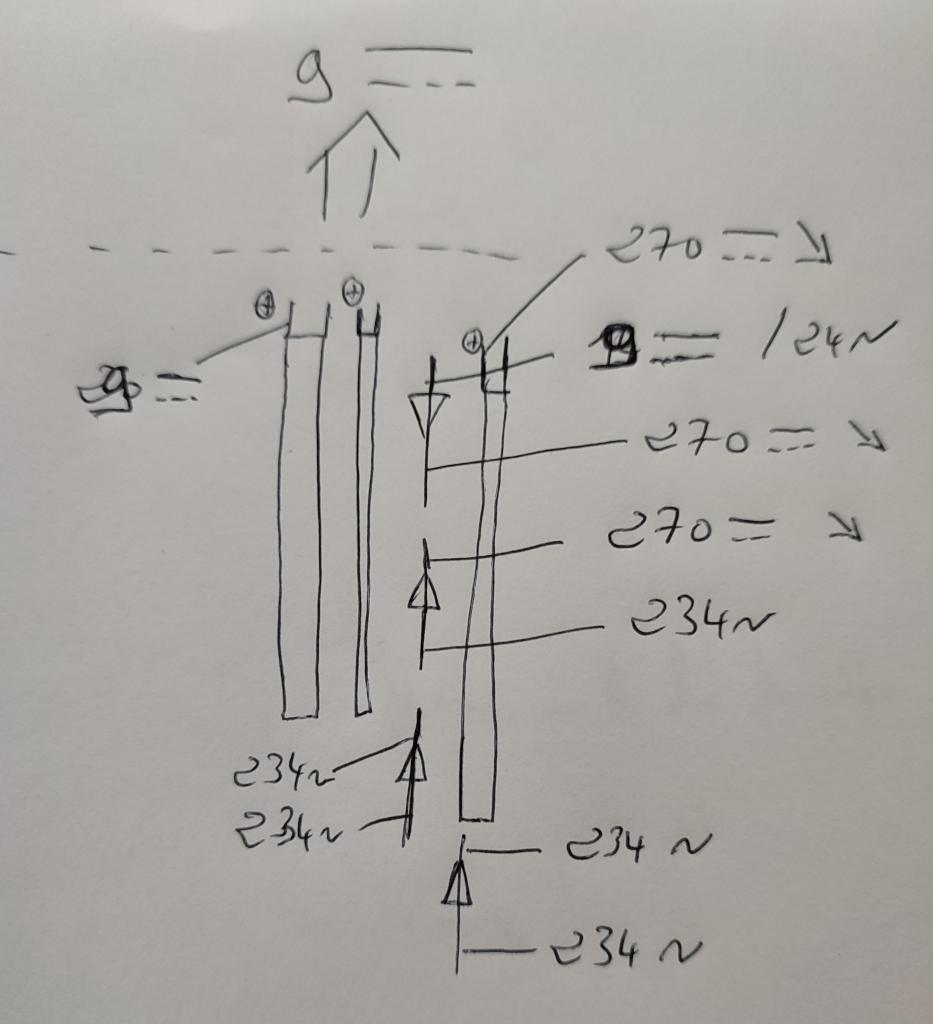 9 ⎓
270 ⎓ ↘
9 ⎓ / 24 ~
9 ⎓
270 ⎓ ↘
270 ⎓ ↘
234 ~
234 ~
234 ~
234 ~
234 ~